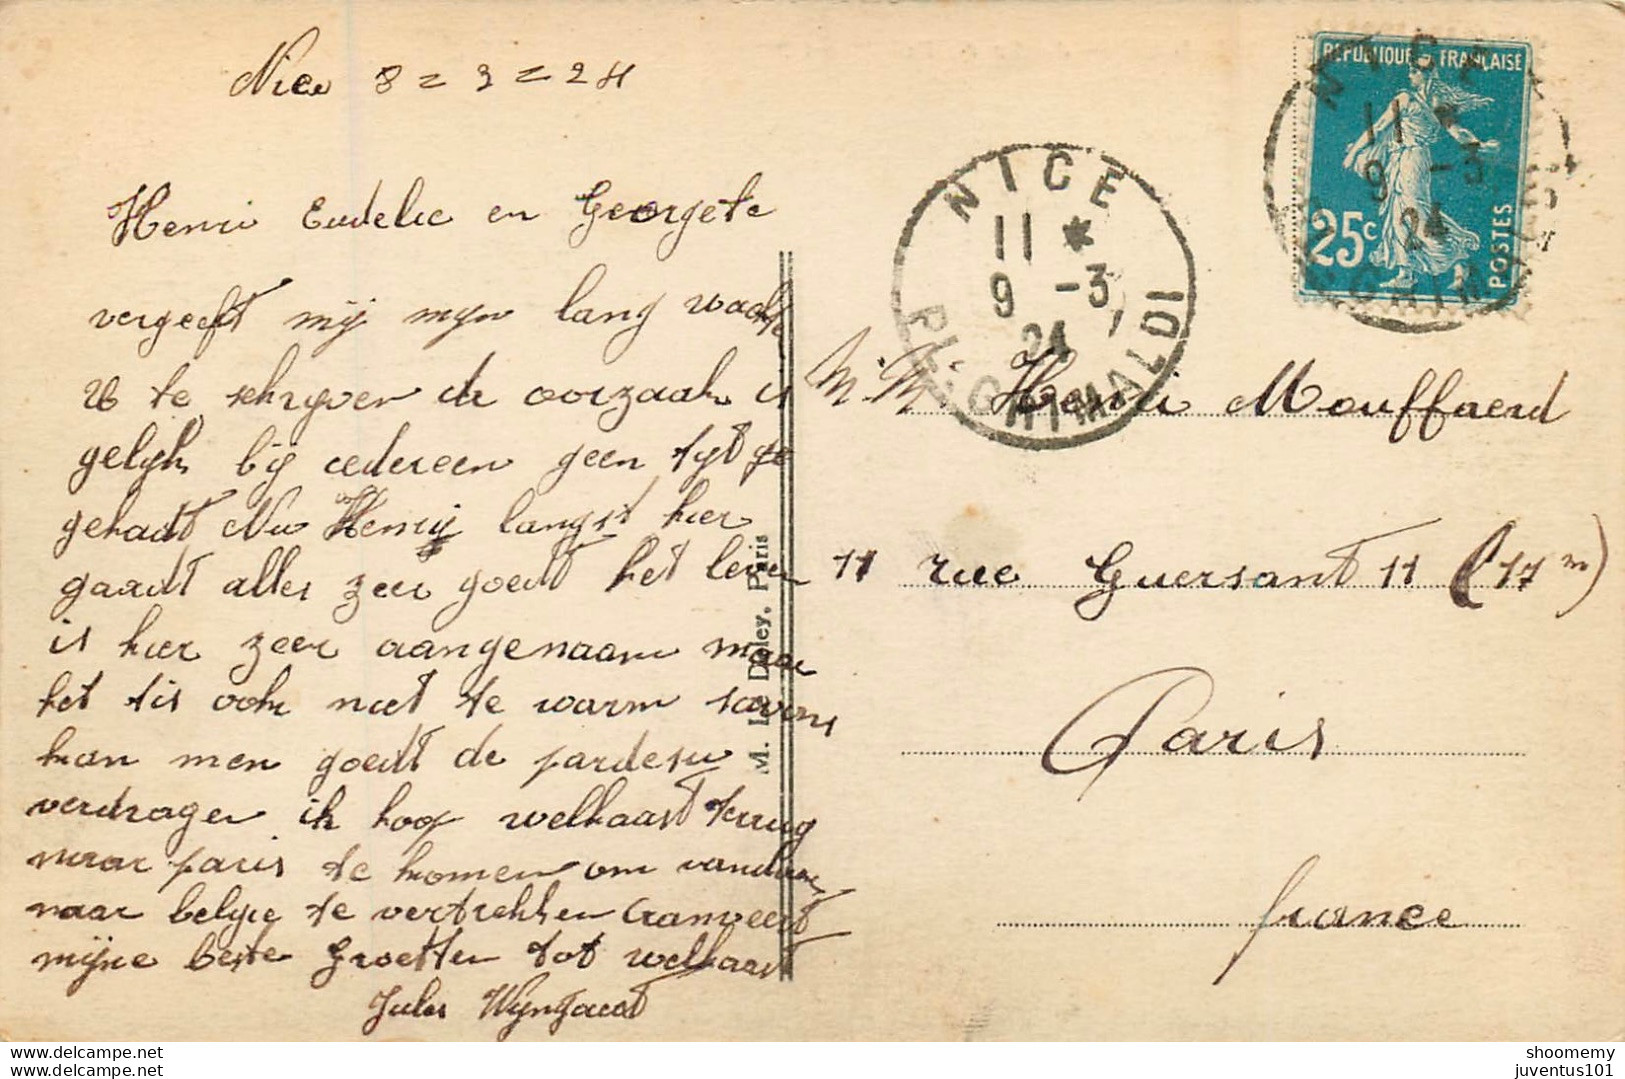 Nice 8 = 3 = 24
Henri Eudelie en Georgete
vergeeft mij myn lang wacht
U te schryver de oorzaak is
gelijk bij iedereen geen tijt ge
gehadt Nu Henrij langst hier
gaadt alles zeer goedt het leven
is hier zeer aangenaam maar
het tis ook niet te warm savons
kan men goedt de pardesu
verdrager ik hoop welhaast terug
naar paris te komen om vandaar
naar belgie te vertrekken Ganveert
mijne beste Groetter tot welhaast
Jules Wyngaert
M. Le Deley, Paris
REPUBLIQUE FRANÇAISE
25c
POSTES
NICE
11 *
9 -3
24
PL. GRIMALDI
NICE
11 *
9 -3
24
GRIMALDI
M. M. Henri Mouffaerd
11 rue Guersant 11 (17m)
Paris
france
delcampe.net
juventus101
shoomemy
juventus101